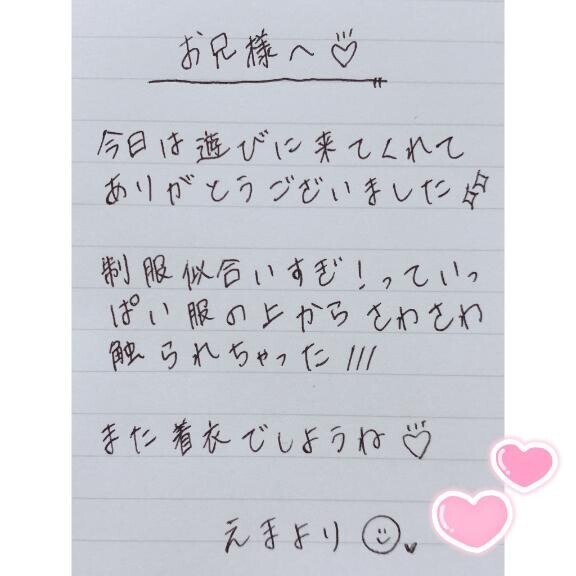 お兄様へ♡
今日は遊びに来てくれて
ありがとうございました
制服似合いすぎ!っていっ
ぱい服の上からさわさわ
触られちゃった///
また着衣でしようね♡
えまより